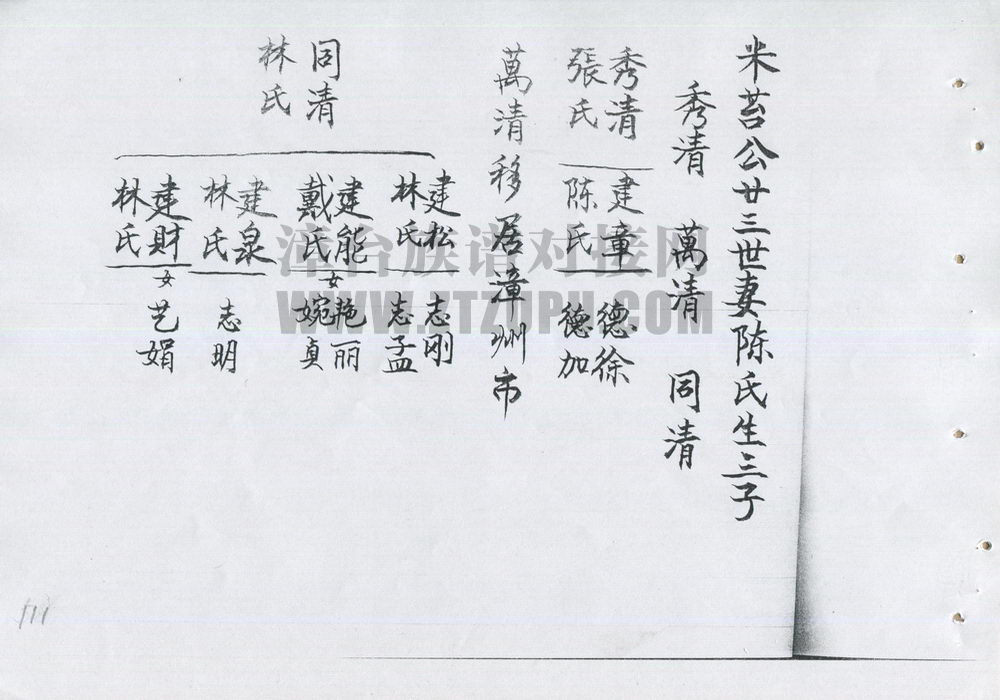 米苔公廿三世妻陈氏生三子
秀清 萬清 同清
秀清
張氏
建章
陈氏
德徐
德加
萬清移居漳州市
同清
林氏
建松
林氏
志刚
志孟
建能
戴氏
女
艳丽
婉貞
建泉
林氏
志明
建財
林氏
女
艺娟
漳台族谱对接网
WWW.ZTZUPU.COM
111